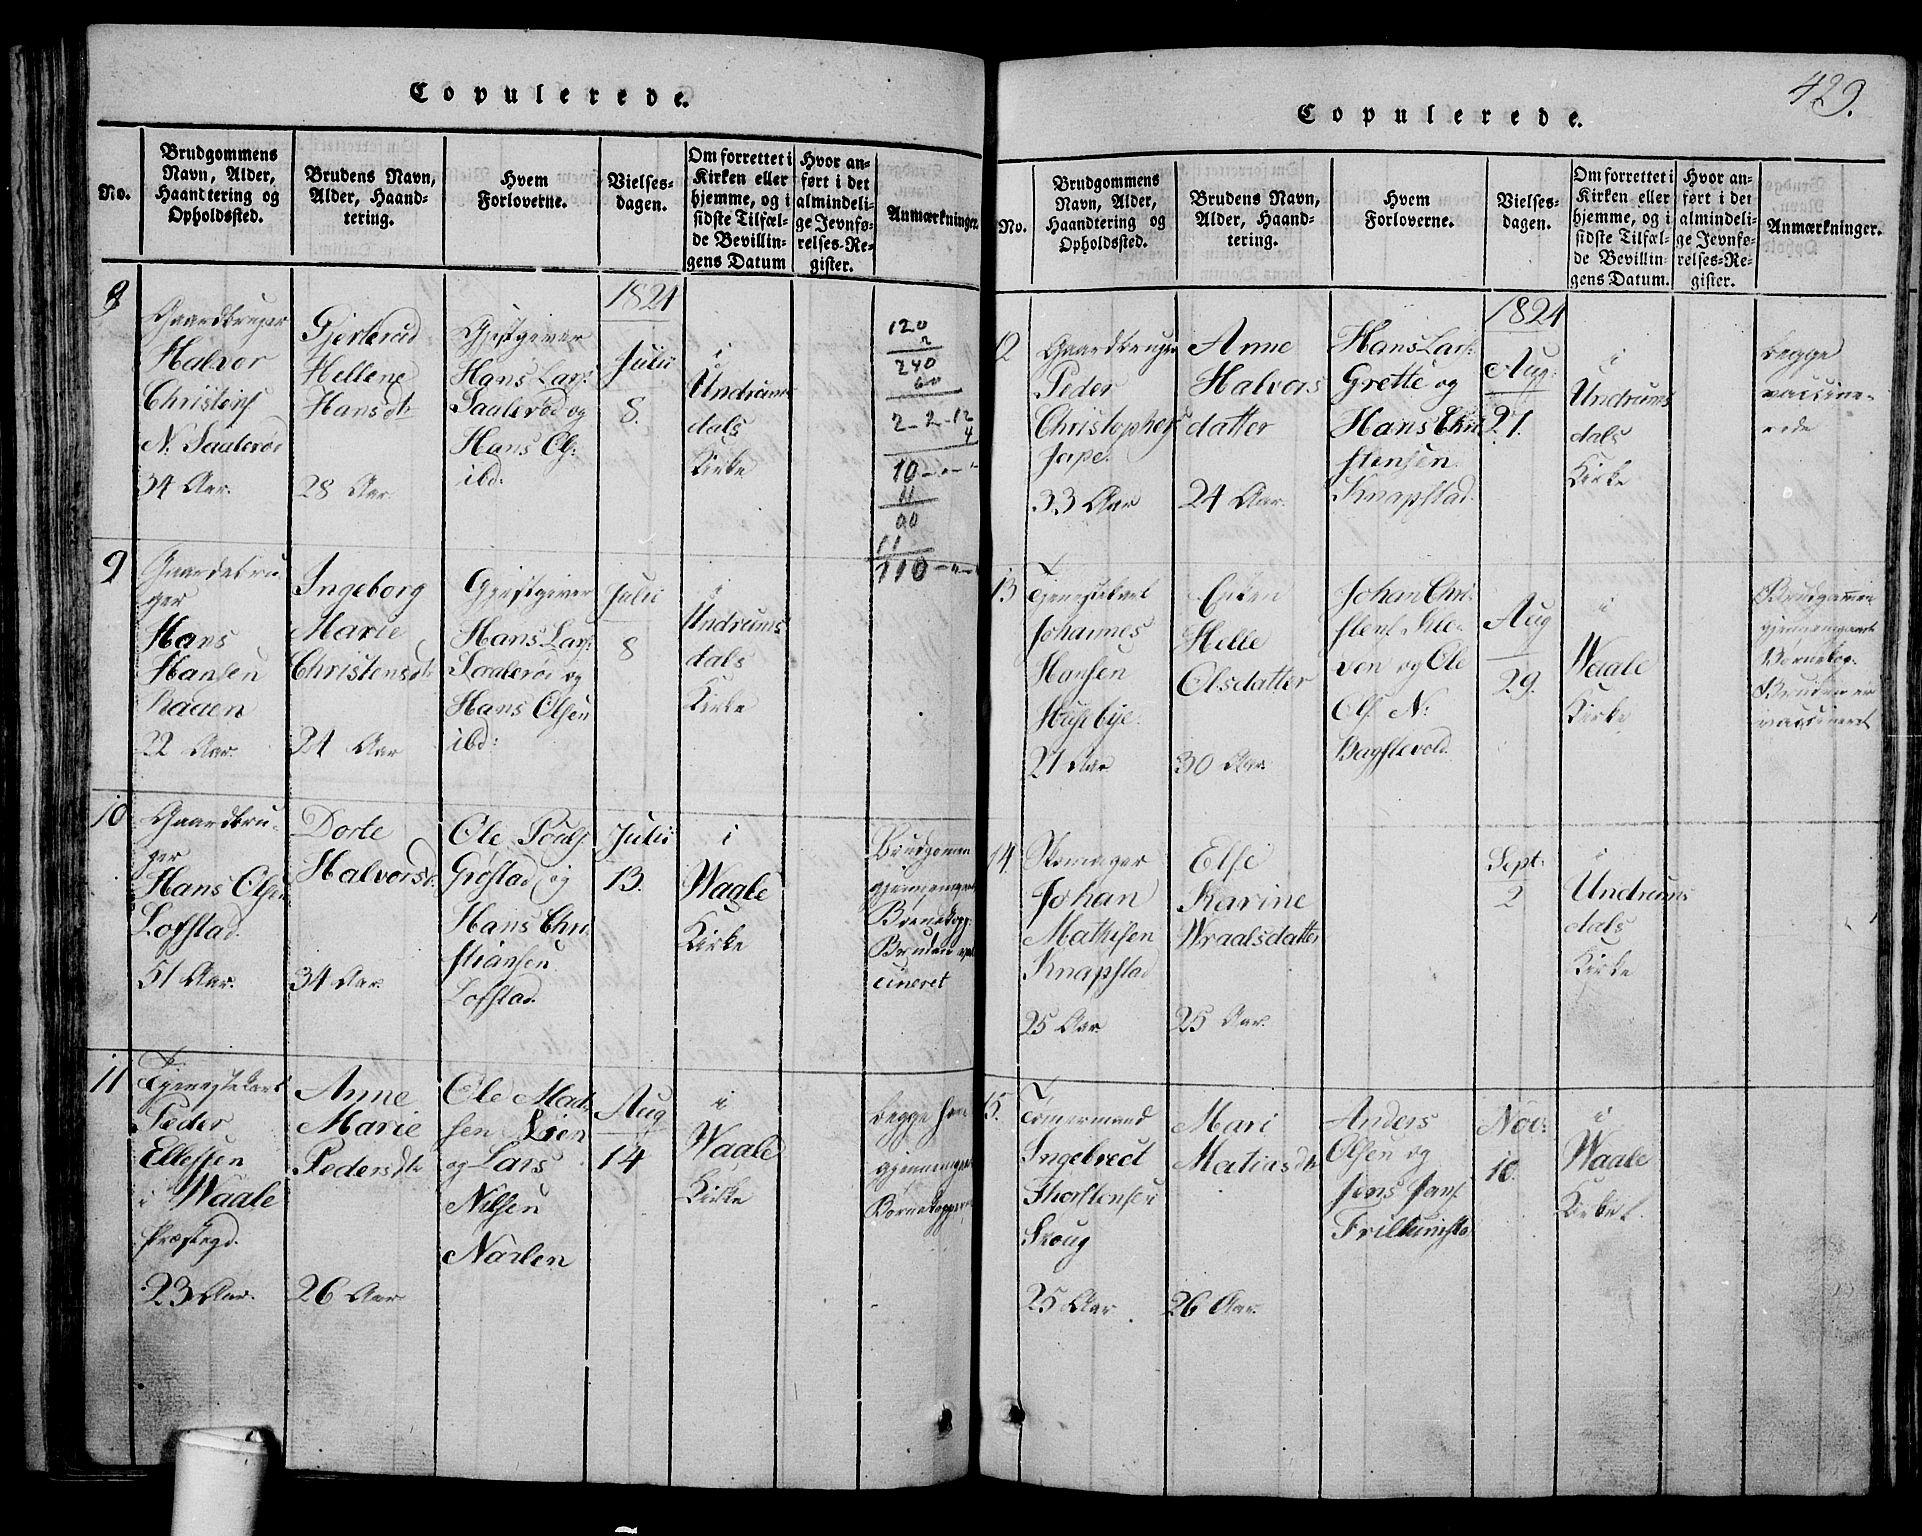 Copulerede.
No.
Brudgommens
Navn, Alder,
Haandtering og
Opholdssted.
Brudens Navn,
Alder, Haand-
tering.
Hvem
Forloverne.
Vielses-
dagen.
Om forrettet i
Kirken eller
hjemme, og i
sidste Tilfæl-
de Bevillin-
gens Datum
Hvor an-
ført i det
almindeli-
ge Jevnfø-
relses-Re-
gister.
Anmærkninger.
8
Gaardbruger
Halvor
Christens
N. Saalerød
34 Aar.
Gjertrud
Hellene
Hansdtr
28 Aar
Gjestgiver
Hans Lars:
Saalerød og
Hans Ols:
ibd:
1824
Julii
8.
i
Undrums
dals
Kirke
120
2
240
60
2-2-12
4
10
11
00
11
110
9
Gaardebru-
ger
Hans
Hansen
22 Aar
Ingeborg
Marie
Christensdtr
24 Aar
Gjestgiver
Hans Lars:
Saalerød og
Hans Olsen
ibd:
Julii
8
i
Undrums
dals
Kirke
10
Gaardbru-
ger
Hans Olsen
Lofstad
51 Aar.
Dorte
Halvorsd.
34 Aar.
Ole Pouls
Grøstad og
Hans Chri
stiansen
Lofstad
Julii
13.
i
Waale
Kirke
Brudgomen
gjennemgaaet
Bruden
cineret
11
Tjenestekarl
Peder
Ellefsen
i Waale
Præstegd.
23 Aar.
Anne
Marie
Pedersdtr
26 Aar
Ole Mad-
sen Lien
og Lars
Nilsen
Narlen
Aug
14
i
Waale
Kirke
Begge
429.
Copulerede.
No.
Brudgommens
Navn, Alder,
Haandtering og
Opholdssted.
Brudens Navn,
Alder, Haand-
tering.
Hvem
Forloverne.
Vielses-
dagen.
Om forrettet i
Kirken eller
hjemme, og i
sidste Tilfæl-
de Bevillin-
gens Datum.
Hvor an-
ført i det
almindeli-
ge Jevnfø-
relses-Re-
gister.
Anmærkninger.
12
Gaardbruger
Peder
Christophers
33 Aar
Anne
Halvors
datter
24 Aar.
Hans Lars:
Grette og
Hans Chri
stensen
Knapstad
1824
Aug:
21.
i
Undrums
dals
Kirke
Begge
vaccine-
rede
13
Tjenestekarl
Johannes
Hansen
Husebye.
21 Aar
Enken
Helle
Olsdatter
30 Aar
Johan Chri
stens
og Ole
Ols. N.
Aug
29.
i
Waale
Kirke
Brudgommen
gjennemgaaet
Bruden er
vaccineret
14.
Skomager
Johan
Mathisen
Knapstad
25 Aar
Else
Karine
Wraalsdatter
25 Aar.
Sept:
2
i
Undrums
dals
Kirke
15.
Tømermand
Ingebrect
Thorstensen
Skoug
25 Aar
Mari
Matiasdtr
26 Aar
Anders
Olsen og
Jens Jans
Nov:
10.
i
Waale